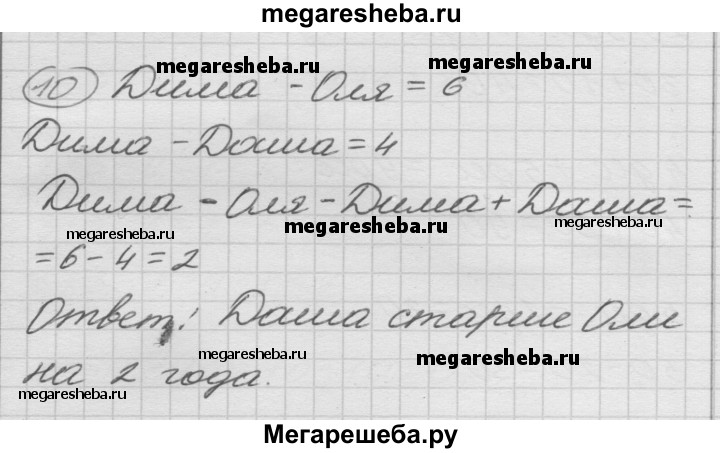 megaresheba.ru
megaresheba.ru
megaresheba.ru
10 Дима - Оля = 6
Дима - Даша = 4
Дима - Оля - Дима + Даша =
megaresheba.ru
megaresheba.ru
megaresheba.ru
= 6 - 4 = 2
Ответ: Даша старше Оли
megaresheba.ru
megaresheba.ru
на 2 года.
megaresheba.ru
Мегарешеба.ру